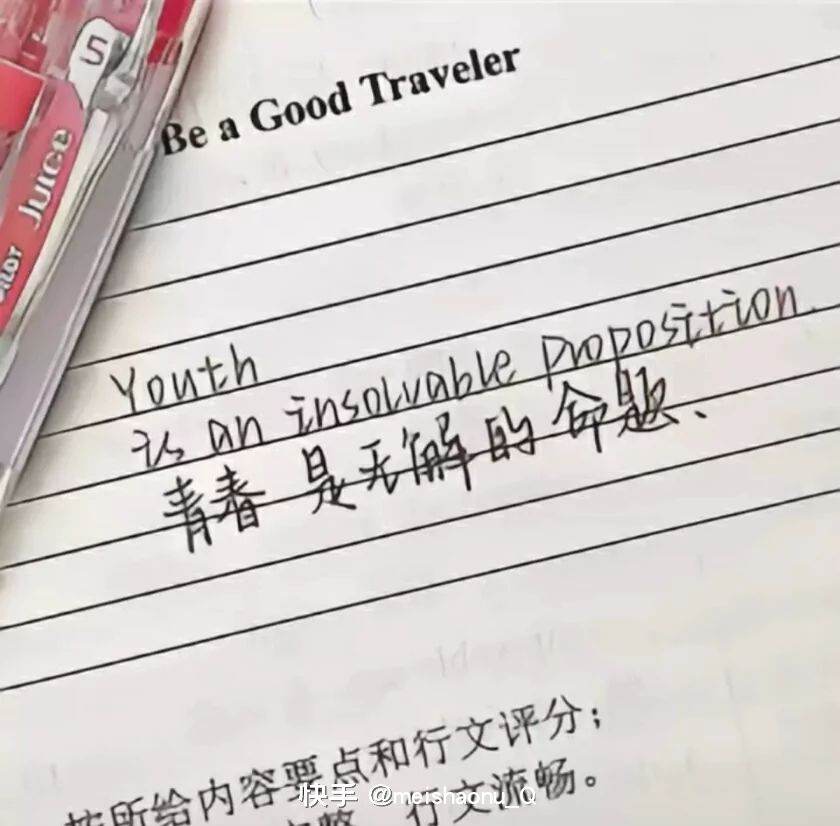 5
Juice
Be a Good Traveler
Youth
is an insolvable proposition.
青春是无解的命题、
按所给内容要点和行文评分；
行文流畅。
快手 @meishaonu_Q